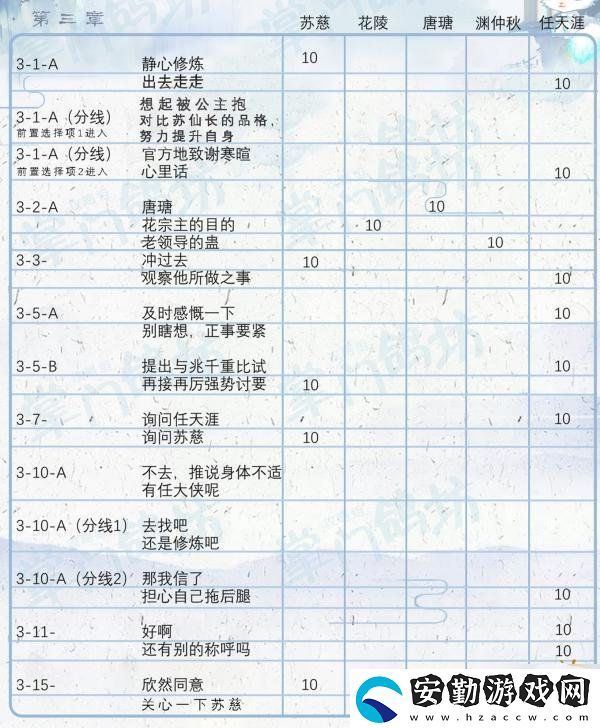 第三章 苏慈 花陵 唐瑭 渊仲秋 任天涯
3-1-A 静心修炼 10
出去走走 10
想起被公主抱
3-1-A（分线） 对比苏仙长的品格，
前置选择项1进入 努力提升自身
3-1-A（分线） 官方地致谢寒暄
前置选择项2进入 心里话 10
3-2-A 唐瑭 10
花宗主的目的 10
老领导的蛊 10
3-3- 冲过去 10
观察他所做之事 10
3-5-A 及时感慨一下 10
别瞎想，正事要紧
3-5-B 提出与兆千重比试 10
再接再厉强势讨要 10
3-7- 询问任天涯 10
询问苏慈 10
3-10-A 不去，推说身体不适
有任大侠呢
3-10-A（分线1） 去找吧
还是修炼吧
3-10-A（分线2） 那我信了
担心自己拖后腿 10
3-11- 好啊 10
还有别的称呼吗 10
3-15- 欣然同意 10
关心一下苏慈
掌门鸽坊
掌门鸽坊
掌门鸽坊
掌门鸽坊
掌门鸽坊
掌门鸽坊
安勤游戏网
www.hzaccw.com